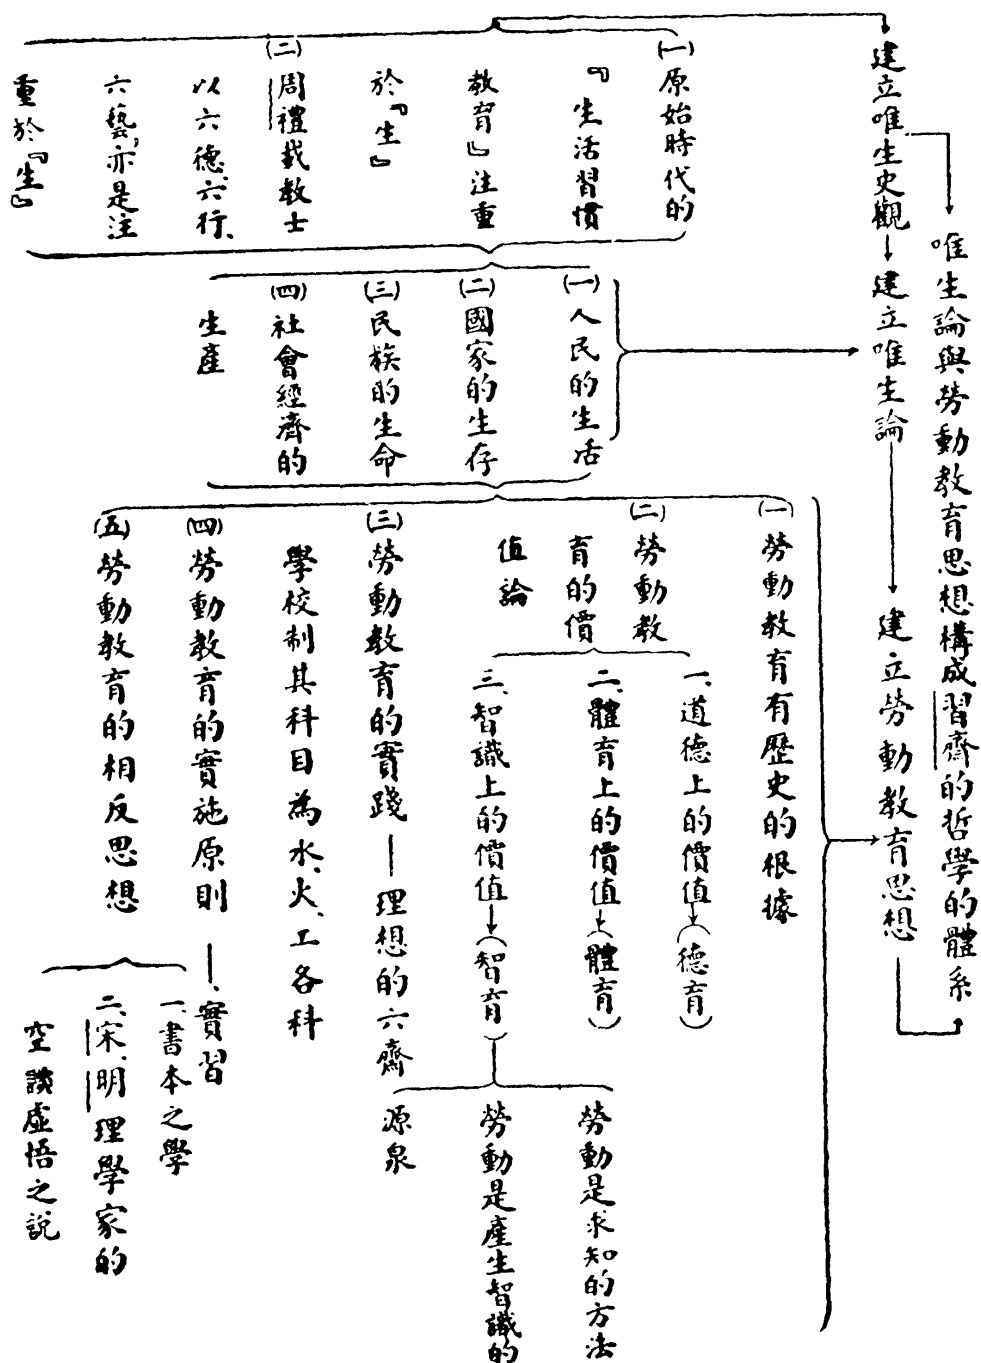 唯生論與勞動教育思想構成習齋的哲學的體系
建立唯生史觀
建立唯生論
建立勞動教育思想
(一)原始時代的
『生活習慣
教育』注重
於『生』
(二)周禮載教士
以六德、六行、
六藝,亦是注
重於『生』
(一)人民的生活
(二)國家的生存
(三)民族的生命
(四)社會經濟的
生產
(一)勞動教育有歷史的根據
(二)勞動教
育的價
值論
一、道德上的價值(德育)
二、體育上的價值(體育)
三、智識上的價值(智育)
勞動是求知的方法
勞動是產生智識的
源泉
(三)勞動教育的實踐—理想的六齋
學校制其科目為水、火、工各科
(四)勞動教育的實施原則—實習
(五)勞動教育的相反思想
一、書本之學
二、宋、明理學家的
空談虛悟之說